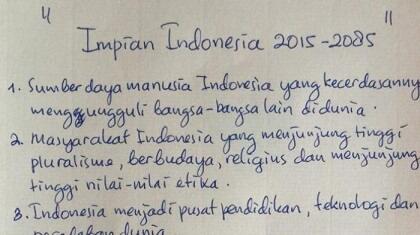 " "
Impian Indonesia 2015-2085
1. Sumber daya manusia Indonesia yang kecerdasanny
mengungguli bangsa-bangsa lain didunia.
2. Masyarakat Indonesia yang menjunjung tinggi
pluralisme, berbudaya, religius dan menjunjung
tinggi nilai-nilai etika.
3. Indonesia menjadi pusat pendidikan, teknologi dan
peradaban dunia